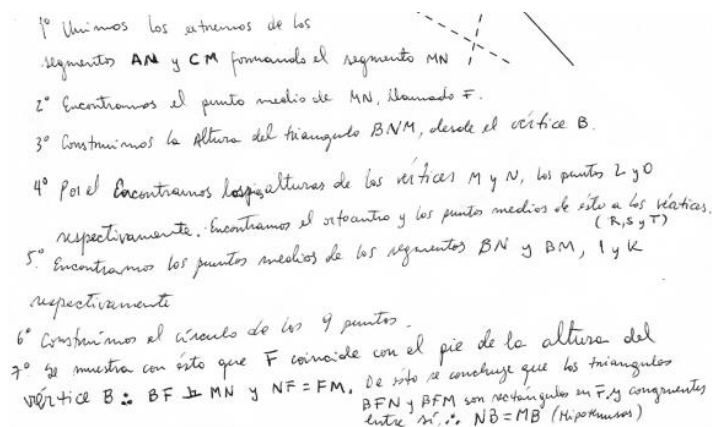 1° Unimos los extremos de los
segmentos AN y CM formando el segmento MN
2° Encontramos el punto medio de MN, llamado F.
3° Construimos la Altura del triangulo BNM, desde el vértice B.
4° Por el Encontramos los pies alturas de los vertices M y N, los puntos L y O
respectivamente. Encontramos el ortocentro y los puntos medios de ésto a los vértices.
(R, S y T)
5° Encontramos los puntos medios de los segmentos BN y BM, I y K
respectivamente
6° Construimos el círculo de los 9 puntos.
7° Se muestra con ésto que F coincide con el pie de la altura del
vértice B ∴ BF ⊥ MN y NF = FM. De ésto se concluye que los triangulos
BFN y BFM son rectángulos en F, y congruentes
entre sí, ∴ NB = MB (Hipotenusas)